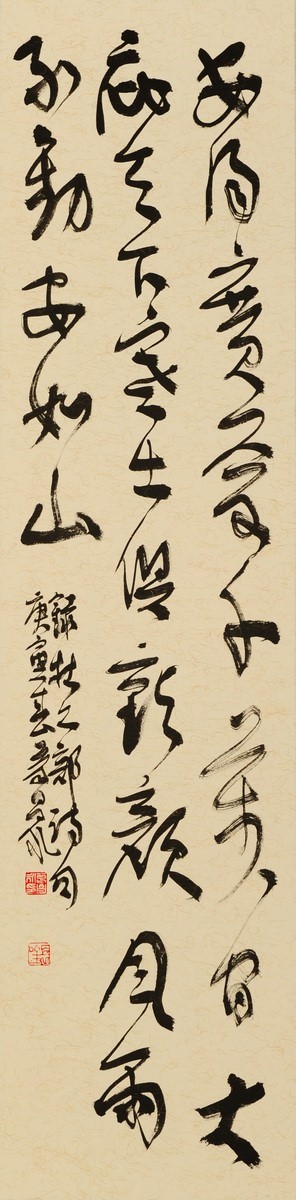 安得廣廈千萬間大
庇天下寒士俱歡顏風雨
不動安如山
錄杜工部詩句
庚寅春